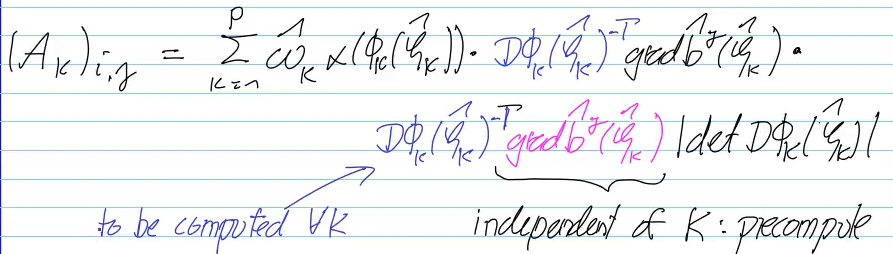 (A_K)_{i,j} = \sum_{k=1}^{P} \hat{ω}_k α(Φ_K(\hat{ζ}_k)) · DΦ_K(\hat{ζ}_k)^{-T} grad \hat{b}^j(\hat{ζ}_k) ·
DΦ_K(\hat{ζ}_k)^{-T} grad \hat{b}^j(\hat{ζ}_k) |det DΦ_K(\hat{ζ}_k)|
to be computed ∀K independent of K : precompute